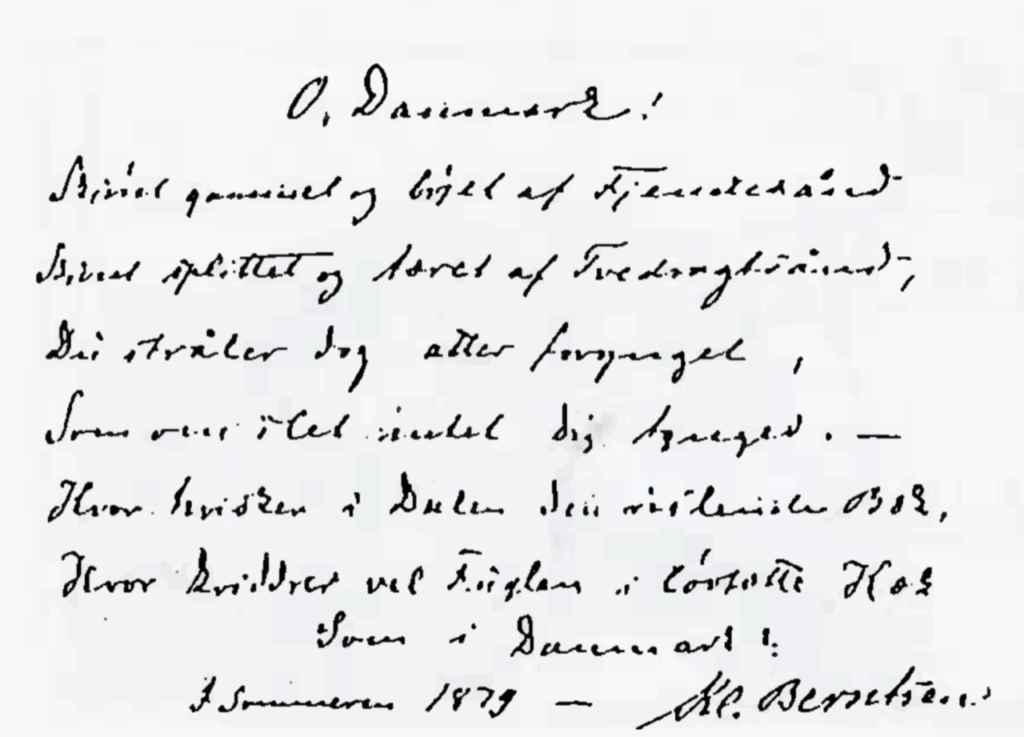 O, Danmark!
Skövet og böjet af Fjendehånd
Skövet splittet og tæret af Tvedragtsånd,
Du stråler dog atter forynget,
Som om slet intet dig tynged. —
Hvor hvisker i Dalen den rislende Bæk,
Hvor kviddrer vel Fuglen i lövtætte Hæk
Som i Danmark!
I Sommeren 1879 — Kl. Berntsen.